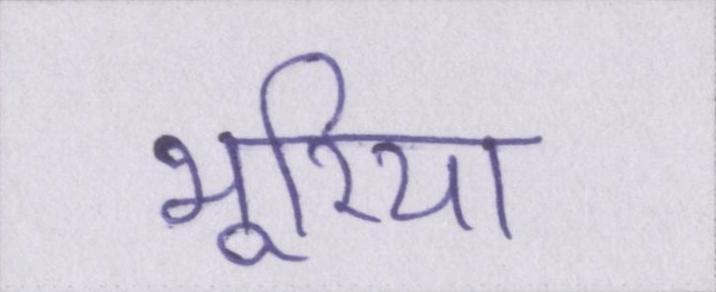 भूरिया